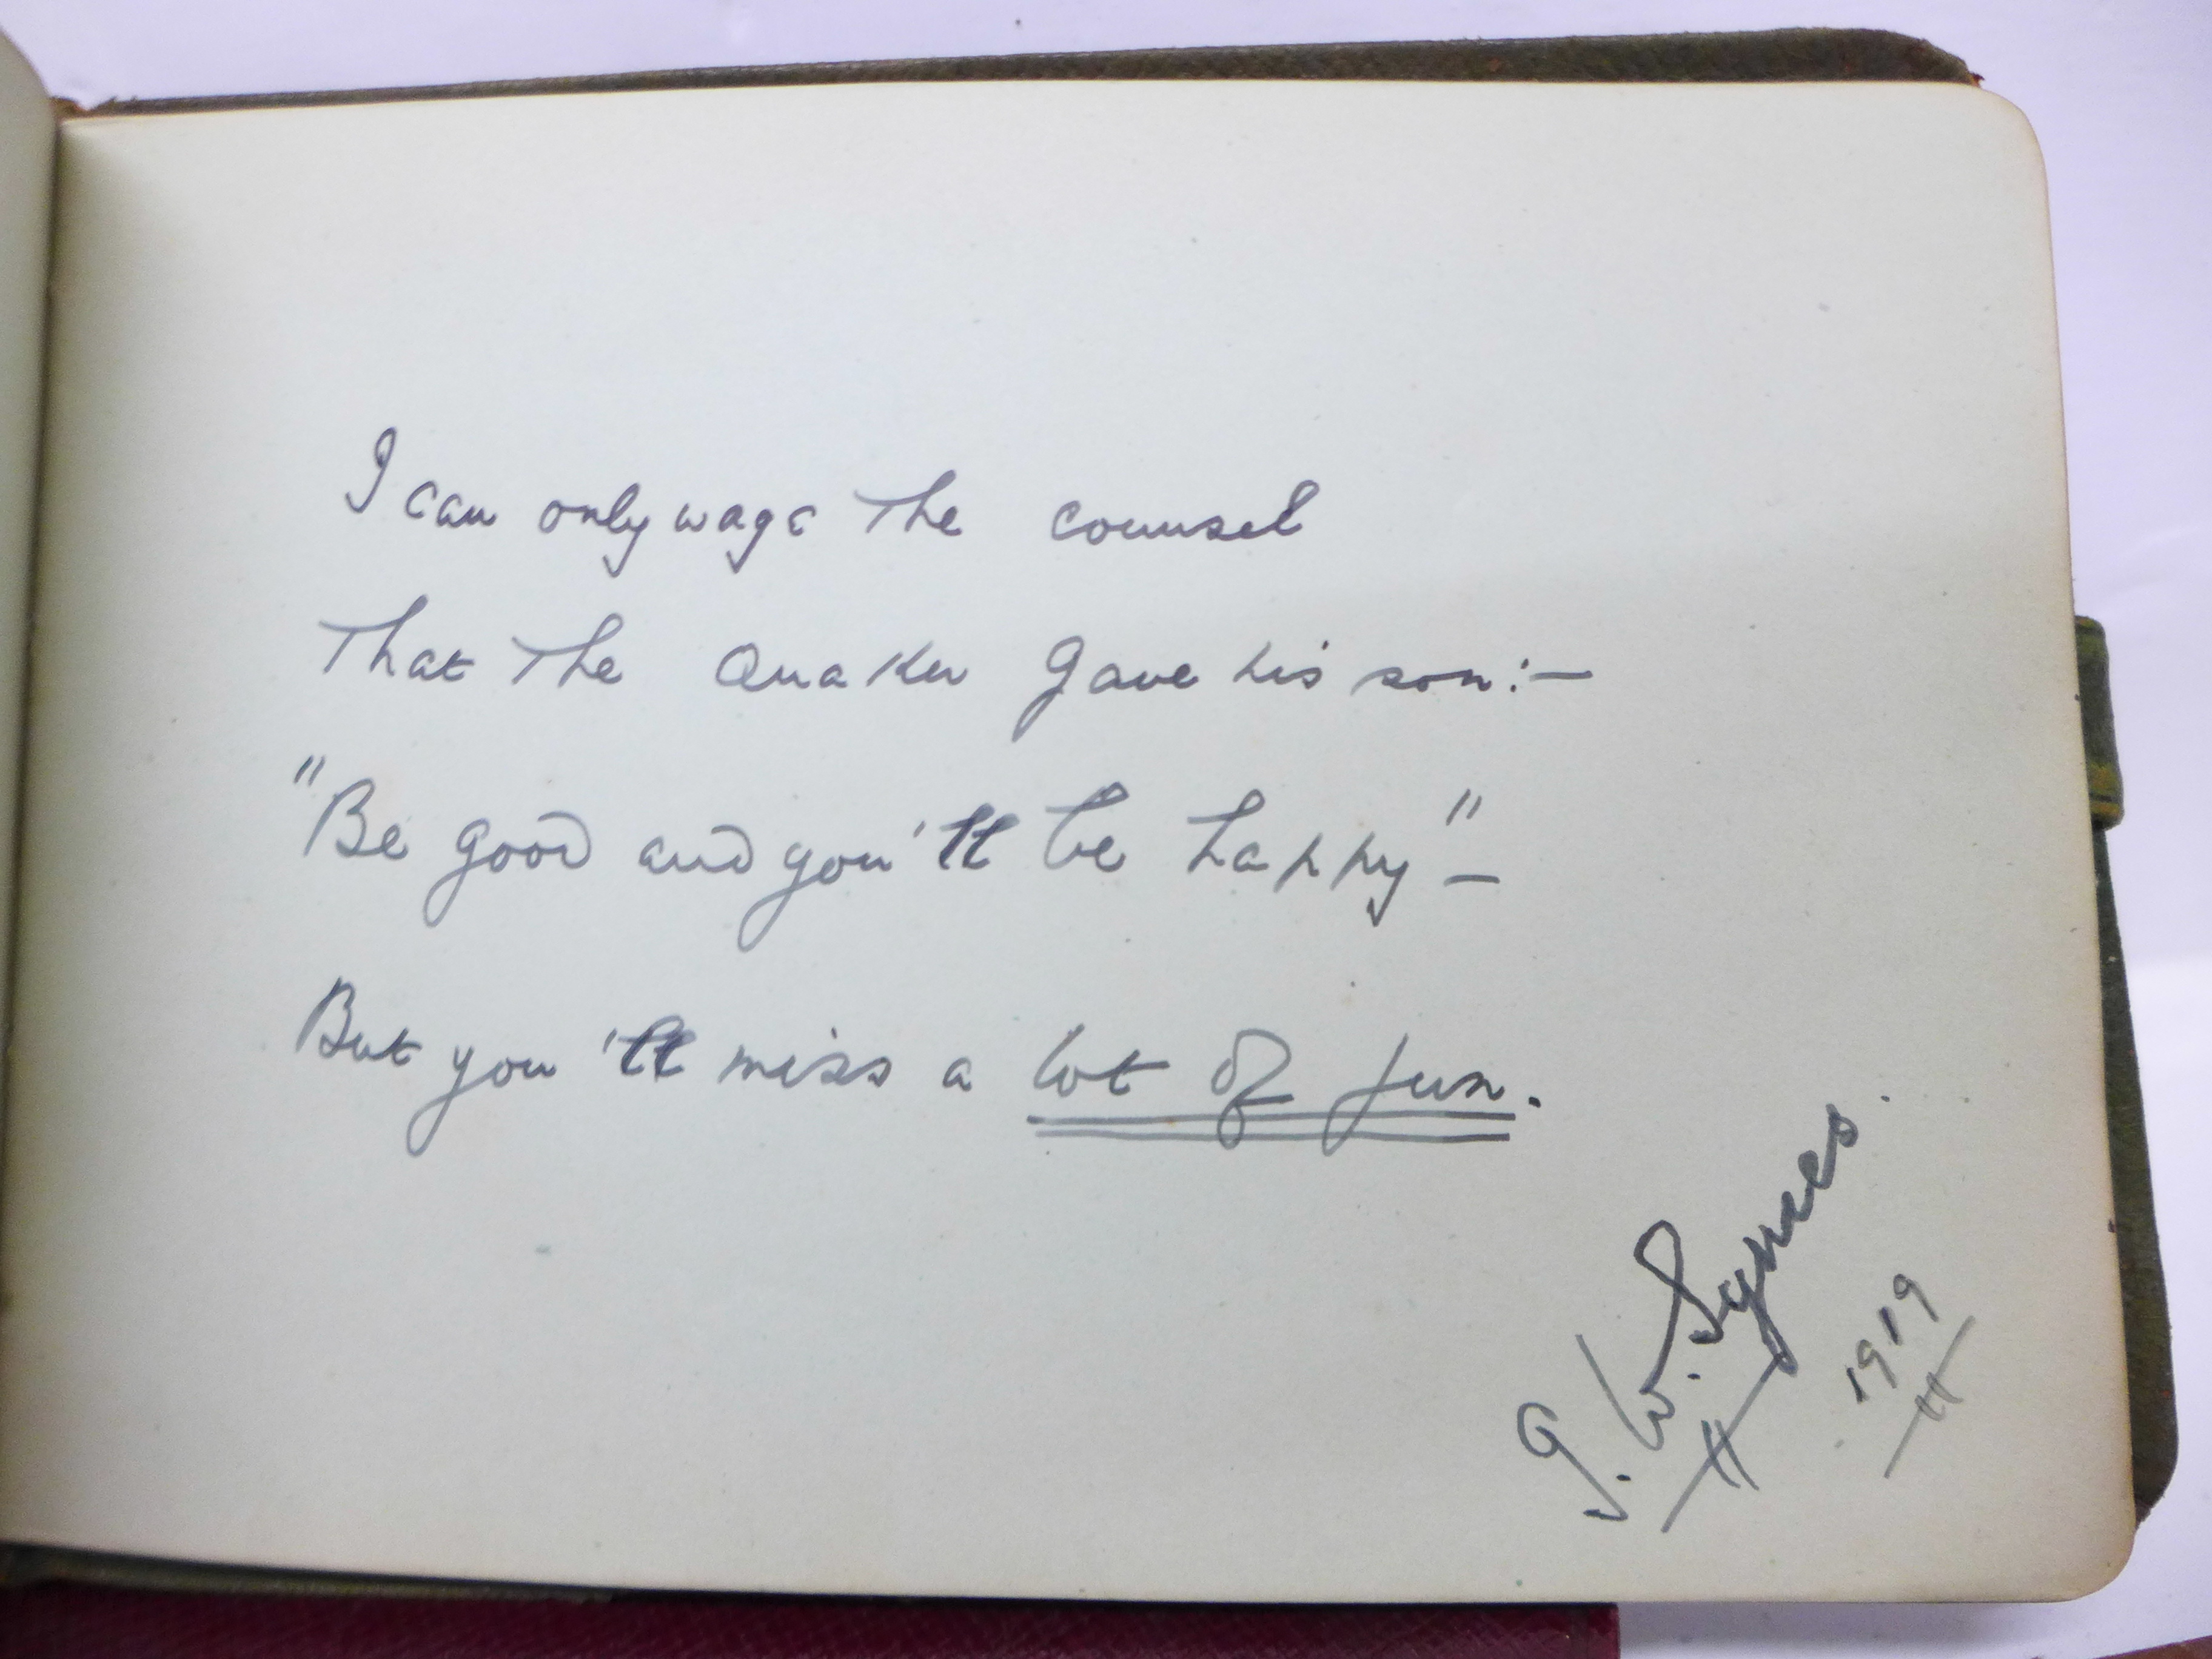 I can only wage the counsel
That the Quaker gave his son:—
"Be good and you'll be happy"—
But you'll miss a lot of fun.
G. W. Symes.
1919